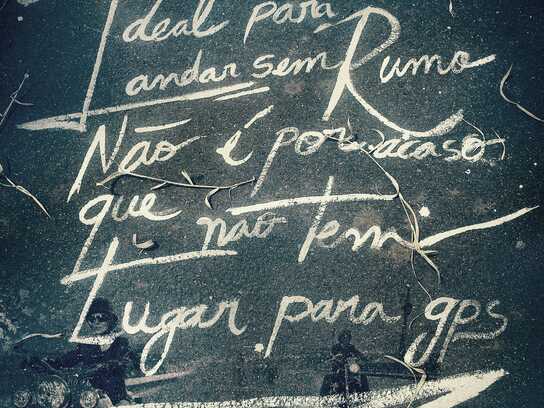 Ideal para
andar sem Rumo
Não é por acaso
que não tem
Lugar para gps